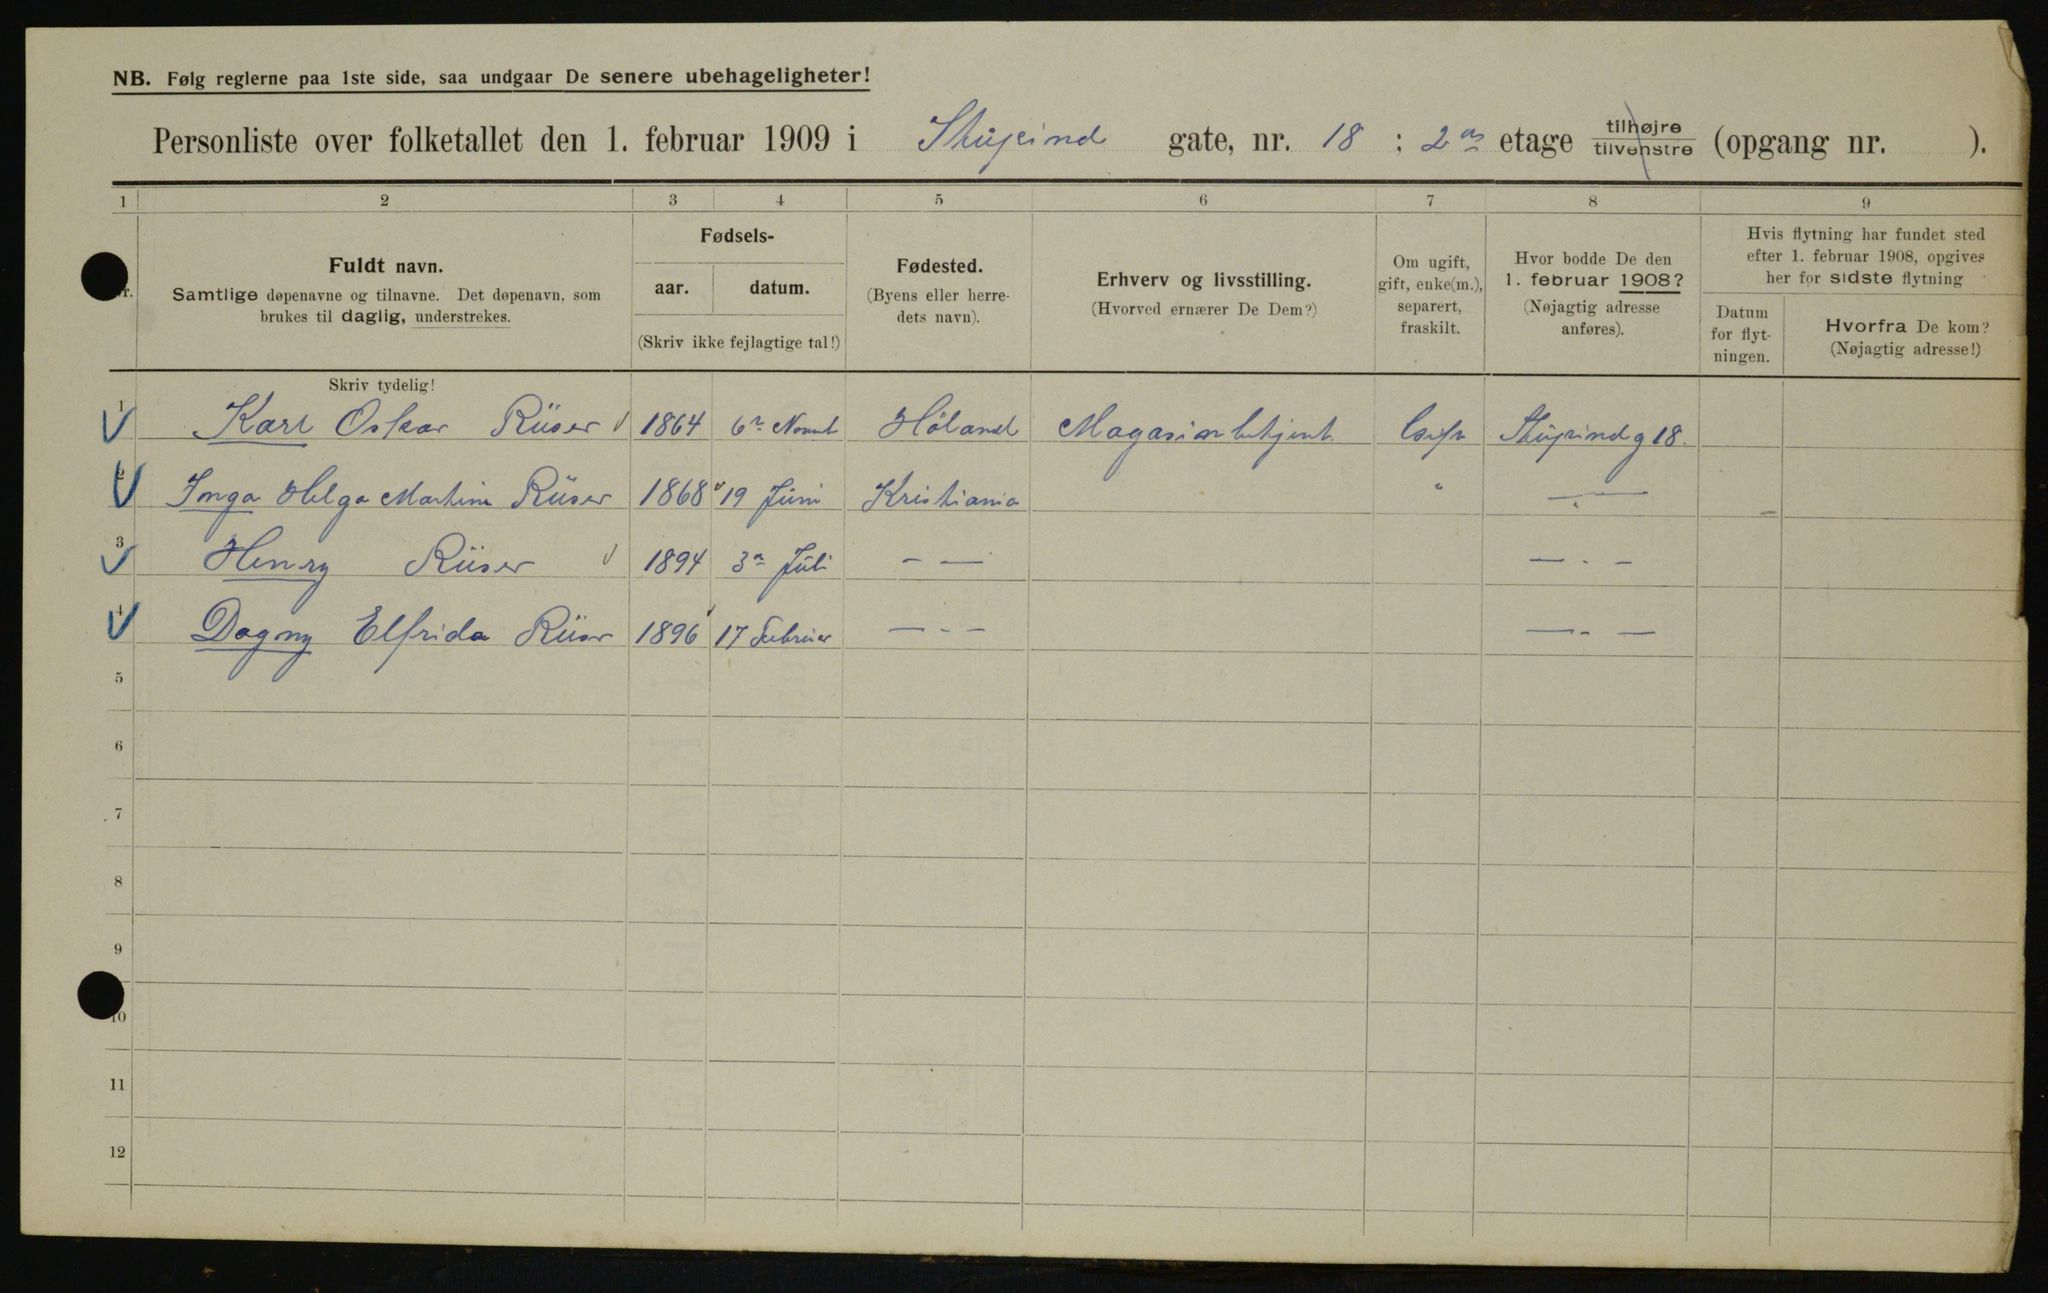 NB. Følg reglerne paa 1ste side, saa undgaar De senere ubehageligheter!
Personliste over folketallet den 1. februar 1909 i Stupind gate, nr. 18 : 2 etage tilhøjre tilvenstre (opgang nr. ).
1 2 3 4 5 6 7 8 9
Nr.
Fuldt navn.
Samtlige døpenavne og tilnavne. Det døpenavn, som
brukes til daglig, understrekes.
Skriv tydelig!
Fødsels-
aar. datum.
(Skriv ikke fejlagtige tal!)
Fødested.
(Byens eller herre-
dets navn).
Erhverv og livsstilling.
(Hvorved ernærer De Dem?)
Om ugift,
gift, enke(m.),
separert,
fraskilt.
Hvor bodde De den
1. februar 1908?
(Nøjagtig adresse
anføres).
Hvis flytning har fundet sted
efter 1. februar 1908, opgives
her for sidste flytning
Datum
for flyt-
ningen.
Hvorfra De kom?
(Nøjagtig adresse!)
1 Karl Oskar Rüser 1864 6 Novmb Høland Magasinbetjent Gift Stupindg 18.
2 Inga Helga Martine Rüser 1868 19 Juni Kristiania " — " —
3 Henry Rüser 1894 3 Juli — — — - —
4 Dagny Elfrida Rüser 1896 17 Februar — - — — - —
5
6
7
8
9
10
11
12